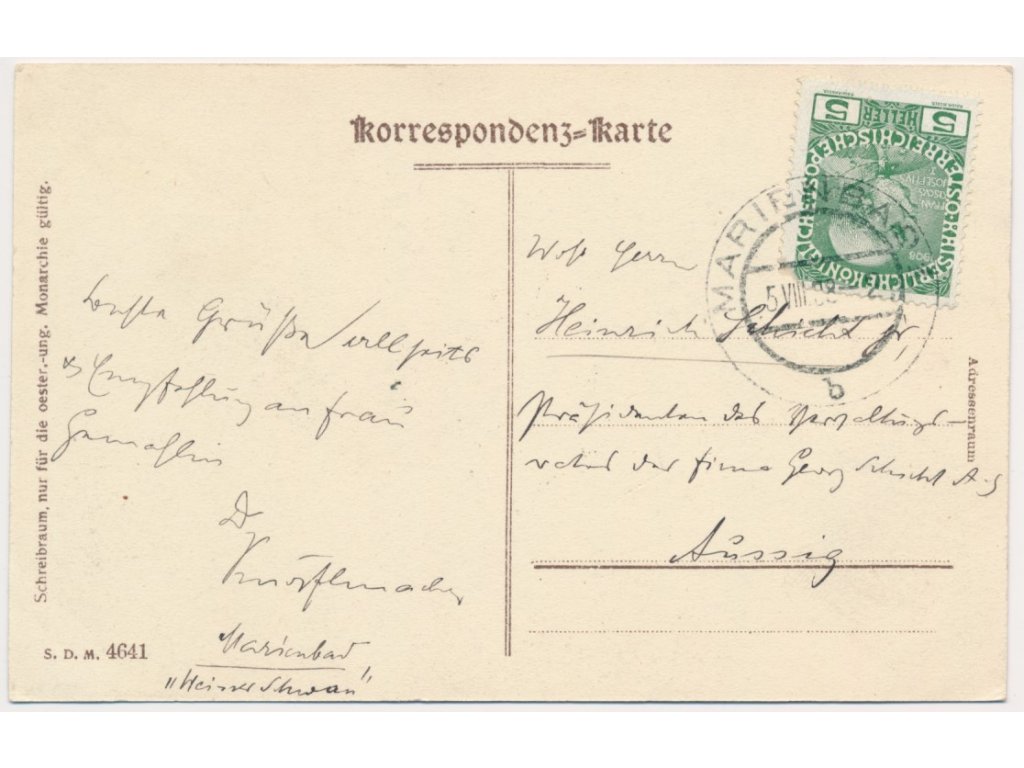 Korrespondenz=Karte
Schreibraum, nur für die oester.-ung. Monarchie gültig.
Beste Grüße allseits
& Empfehlung an Frau
Gemahlin
Dr
Marienbad
"Weisser Schwan"
S. D. M. 4641
5 5
HELLER
KAISERLICHE KÖNIGLICHE ÖSTERREICHISCHE POST
FRANZ JOSEPH I
1908
MARIENBAD
5 VIII 08
b
Herrn
Heinrich Schicht jr,
Präsidenten des Verwaltungs-
rates der Firma Georg Schicht A-G
Aussig
Adressenraum